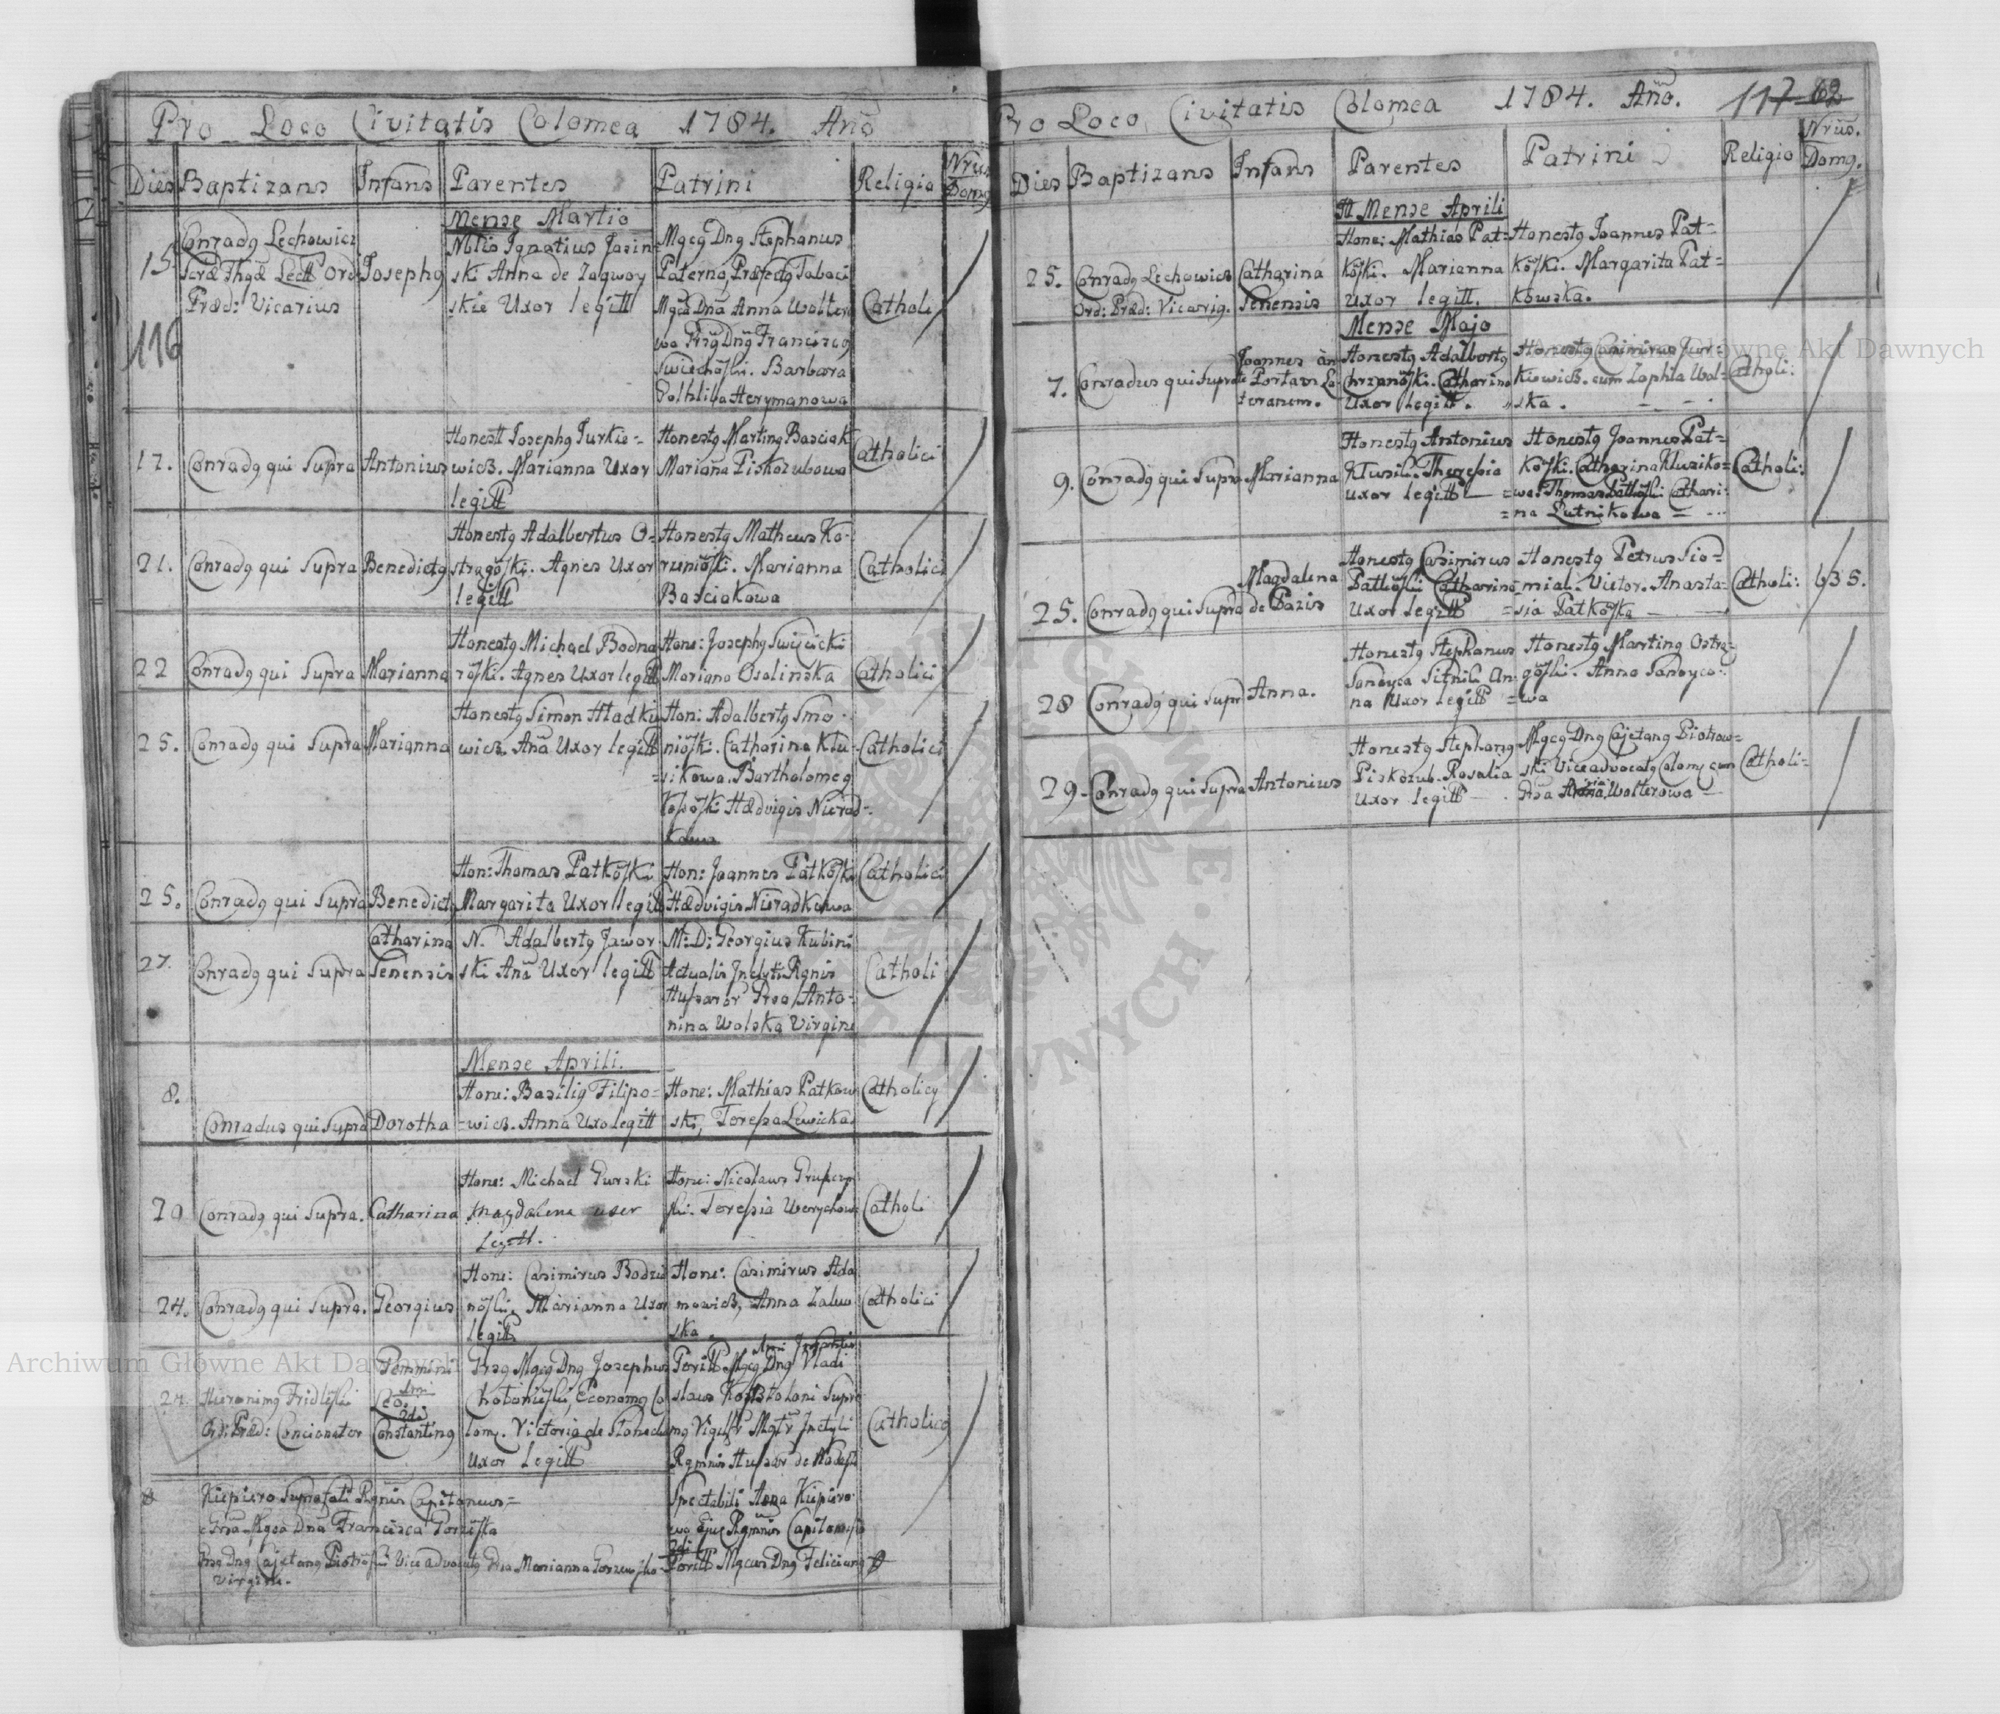 Pro Loco Civitatis Colomea 1784. Año
Dies Baptizans Infans Parentes Patrini Religio Nrus Domq
Mense Martio
15. Conradq Lechowicz
Præd: Vicarius
Josephq
Nblis Ignatius Jasin-
ski Anna de Zagwoy
skie Uxor legitt
Mgcq Dnq Stephanus
Paterno, Præfectq Tabaci
Mgca Dna Anna Wolter
wa Franciscq
Barbara
Herymanowa
Catholi
116
17. Conradq qui Supra Antonius
Honestt Josephq Jurkie-
wicz. Marianna Uxor
legitt
Honestq Martinq Basciak
Mariana Piskozubowa
Catholici
21. Conradq qui Supra Benedictq
Honestq Adalbertus O-
strogöski. Agnes Uxor
legitt
Honestq Matheus Ko-
Marianna
Basciakowa
Catholici
22 Conradq qui Supra Marianna
Honestq Michael Bodna
röski. Agnes Uxor legitt
Hone: Josephq Swiẏcicki
Mariana Osolinska
Catholici
25. Conradq qui Supra Marianna
Honestq Simon Hładki
wicz. Aña Uxor legitt
Hon: Adalbertq Smo-
niöski. Catharina Klu-
=sikowa. Bartholomeq
Kosöski Hædvigis Nierad-
kowa
Catholici
25. Conradq qui Supra Benedict
Hon: Thomas Patköski
Margarita Uxor legitt
Hon: Joannes Patköski
Hædvigis Nieradkowa
Catholici
27. Conradq qui Supra
Catharina
Senensis
N. Adalbertq Jawor
ski Aña Uxor legitt
M: D: Georgius Kubini
Actualis Inclyti Rgnis
Hussaror Gsa Anto-
nina Wolska Virgine
Catholi
Mense Aprili.
8. Conradus qui Supra Dorothea
Hone: Basiliq Filipo-
=wicz. Anna Uxo legitt
Hone: Mathias Patkow
ski, Teressa Lewicka
Catholicy
20 Conradq qui Supra. Catharina
Hone: Michael Gurski
Magdalena uxer
Legitt.
Hone: Nicolaus
ski. Teressia
Catholi
24. Conradq qui Supra. Georgius
Hone: Casimirus Bodzia
nöski. Marianna Uxor
legitt
Hone: Casimirus Ada
mowicz, Anna Zalew
ska
Catholici
24. Hieronimq Fridleski
Ord: Præd: Concionator
Gemmini
1mi
Leo.
2di
Constantinq
Gsq Mgcq Dnq Josephus
Chołoniöski, Economq Co
lom. Victoria de
Uxor Legitt
1mi Infantis
Poritt Mgcq Dnq Vladi
slaus Supre
Inclyti
Rgmnis Hussar de
Catholicq
Kiepiero Suprafati Rgnis Capitaneus=
Gnsa Mgca Dna Francisca
Gnsq Dnq Cajetanq Piotröski Vice advocatq Gsa Marianna
Virgine.
Spectabili Aña Kiepiero
wa Ejus Rgmnis
2di
Poritt Mgcus Dnq Felicianq
Pro Loco Civitatis Colomea 1784. Año. 117 62
Dies Baptizans Infans Parentes Patrini Religio Nrus. Domq.
Mense Aprili
25. Conradq Lechowicz
Ord: Præd: Vicariq.
Catharina
Senensis
Hone: Mathias Pat-
köski. Marianna
Uxor legitt.
Honestq Joannes Pat-
köski. Margarita Pat-
kowska.
Mense Majo
7. Conradus qui Supra
Joannes an
te Portam La-
teranem.
Honestq Adalbertq
Chrzanöski. Catharina
Uxor legitt.
Honestq Casimirus Jur-
kiewicz. cum Zophia Wol-
ska.
Catholi:
9. Conradq qui Supra Marianna
Honestq Antonius
Klusik. Theressia
Uxor legitt
Honestq Joannes Pat-
köski. Catharina Klusiko-
=wa. Thomas Patköski Cathari-
=na Lutnikowa
Catholi:
25. Conradq qui Supra
Magdalena
de Pazis
Honestq Casimirus
Patköski Catharina
Uxor legitt
Honestq Petrus Sio-
mial. Victor. Anasta-
=sia Patköska
Catholi: 635.
28 Conradq qui Supr Anna.
Honestq Stephanus
Sandyca Sitnik An-
na Uxor legitt
Honestq Martinq Ostro-
göski. Anna Sandyco-
=wa
29. Conradq qui Supra Antonius
Honestq Stephanq
Piskozub. Rosalia
Uxor legitt
Mgcq Dnq Cajetanq Piotrow-
ski Viceadvocatq Colomy cum
Gsa Anna Wolterowa
Catholi-
Archiwum Główne Akt Dawnych
Archiwum Główne Akt Dawnych